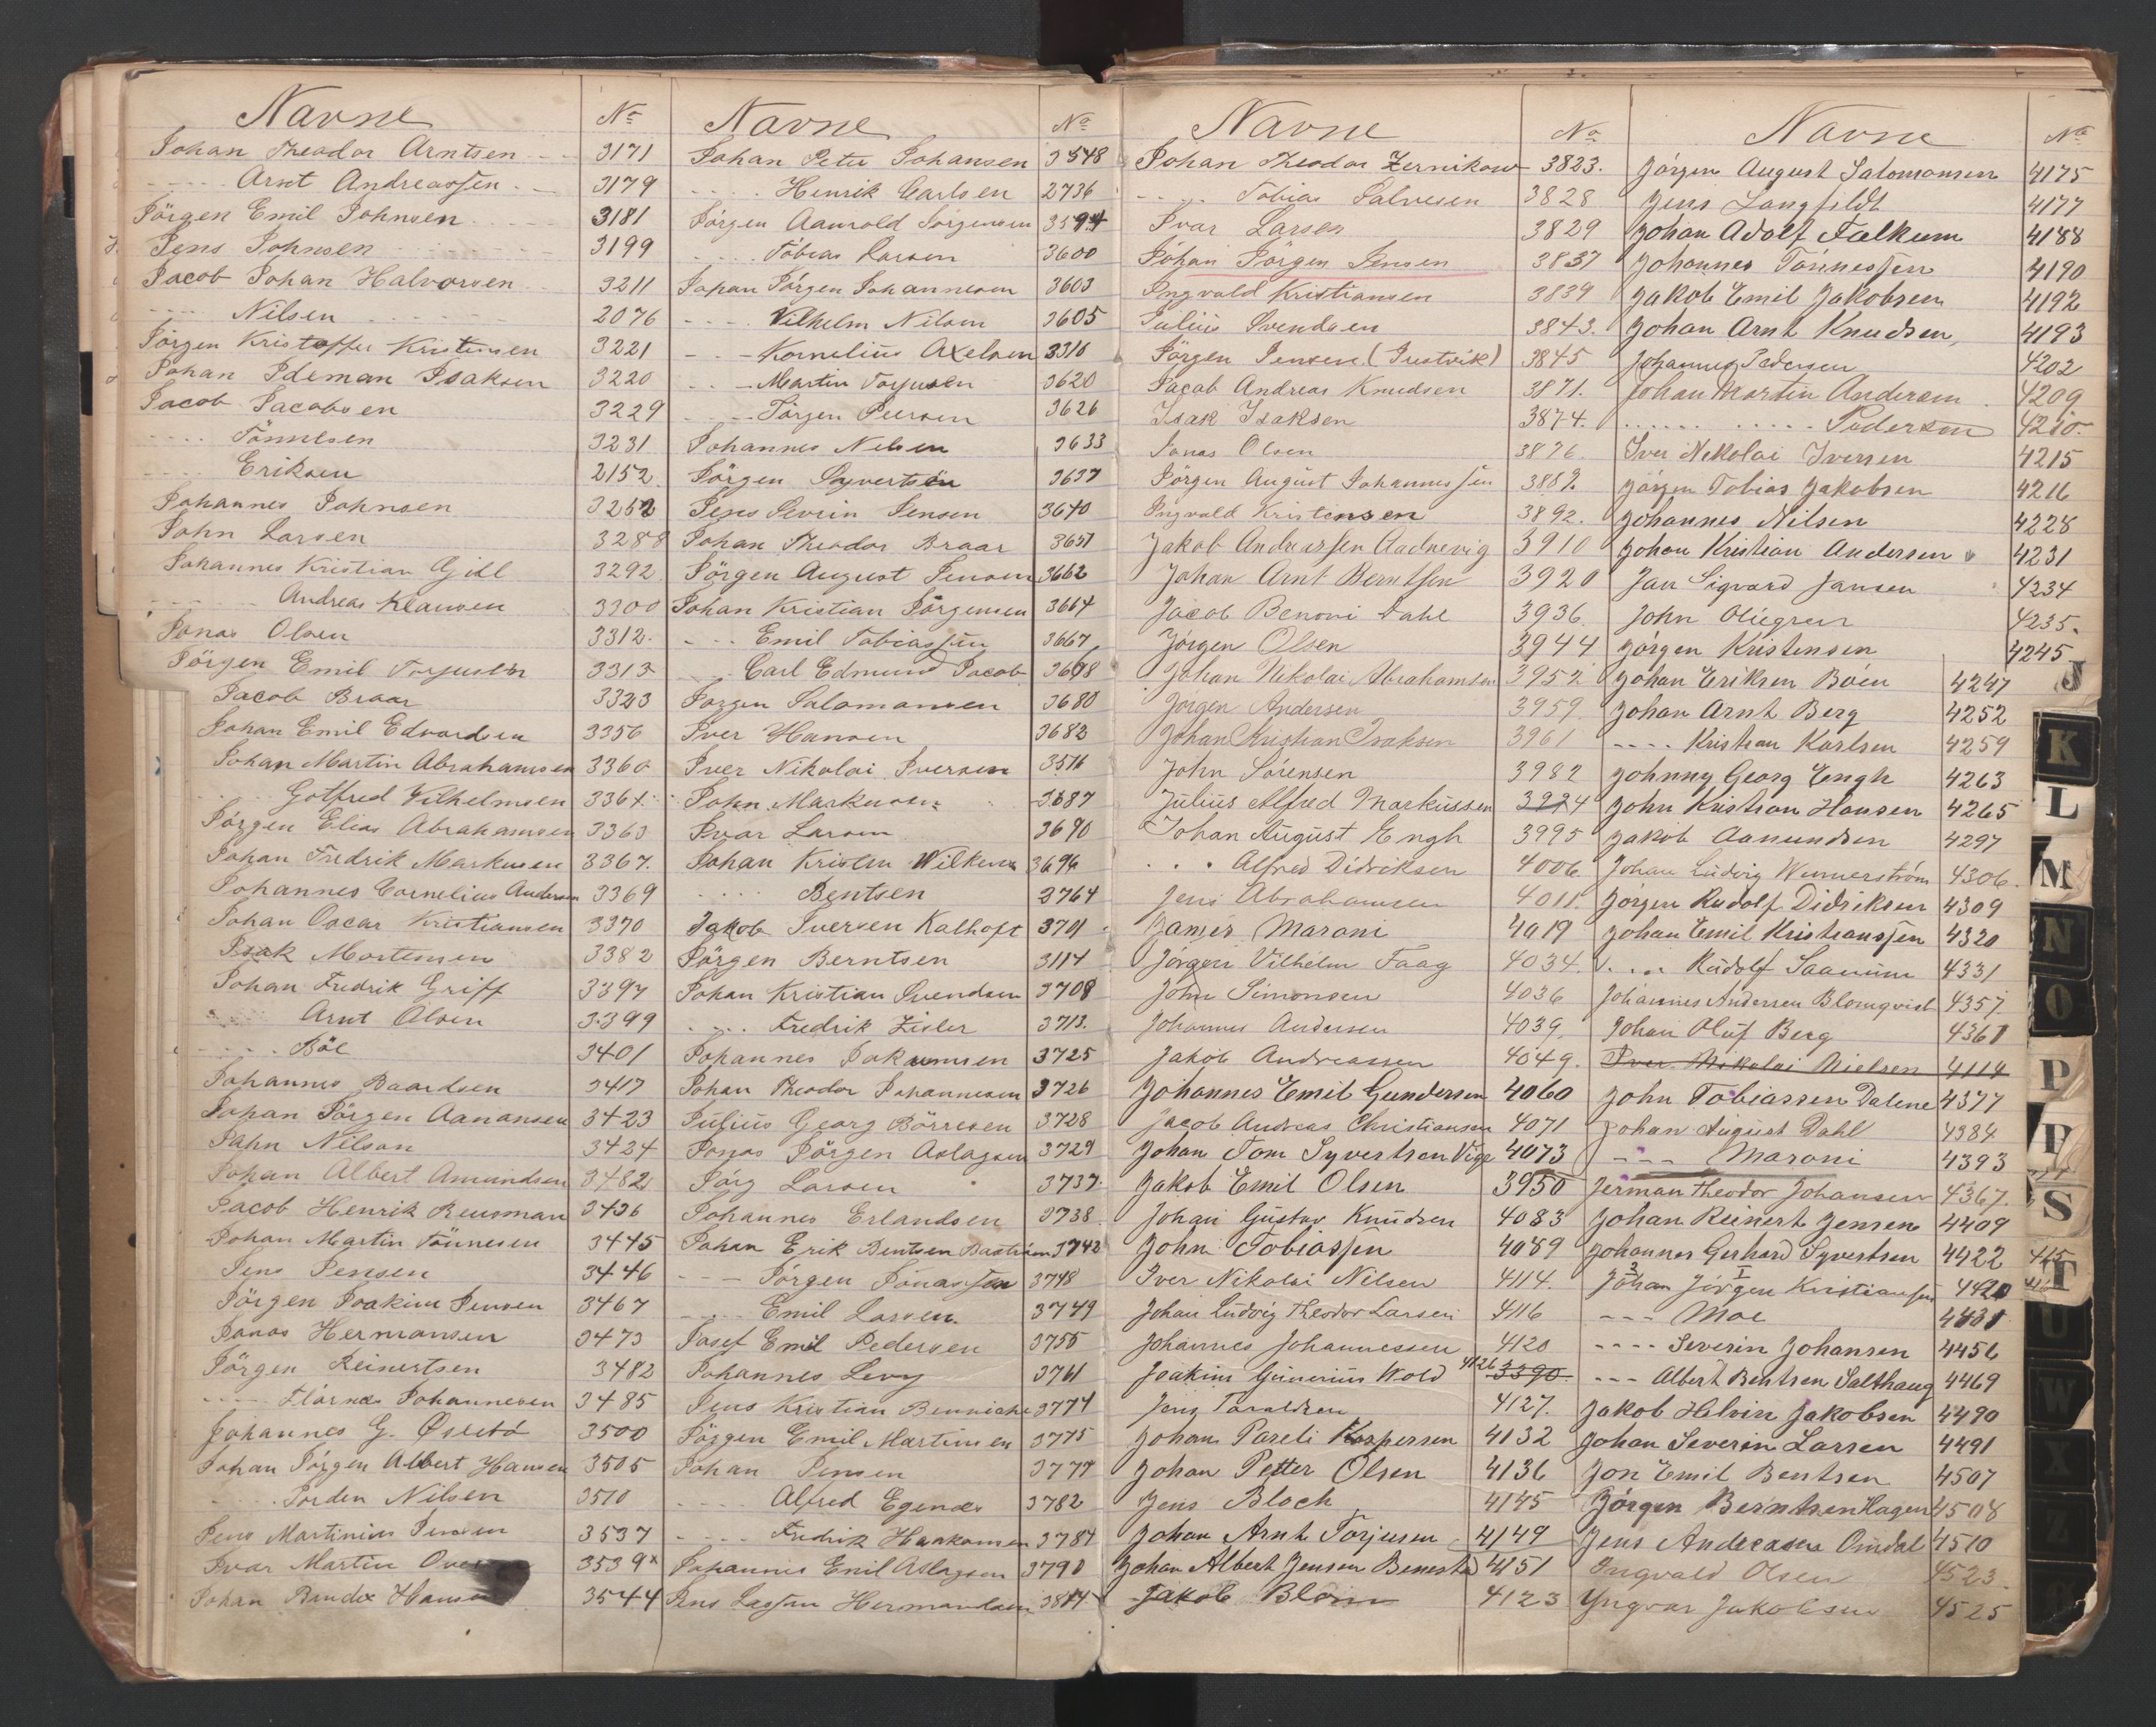 Navne No
Johan Theodor Arntsen - - 3171
- - - - Arnt Andreassen - - 3179
Jörgen Emil Johnsen - - - 3181
Jens Johnsen - - - - 3199
Jacob Johan Halvorsen - - 3211
- - - - Nilsen - - - - 2076
Jörgen Kristoffer Kristensen 3221
Johan Ideman Isaksen 3220
Jacob Jacobsen 3229
- - - - Tönnesen 3231
- - - - Eriksen 2152
Johannes Johnsen 3252
John Larsen 3288
Johannes Kristian Gjill 3292
- - - - Andreas Klausen 3300
Jonas Olsen 3312.
Jörgen Emil Torjusen 3313
Jacob Braar 3323
Johan Emil Edvardsen 3356
Johan Martin Abrahamsen 3360
- - - Gotfred Vilhelmsen 3364
Jörgen Elias Abrahamsen 3363
Johan Fredrik Markusen 3367.
Johannes Cornelius Andersen 3369
Johan Oscar Kristiansen 3370
Isak Mortensen 3382
Johan Fredrik Griff 3397
- - - Arnt Olsen 3399
- - - - Böe 3401
Johannes Baardsen 3417
Johan Jörgen Aanansen 3423
John Nilsen 3424
Johan Albert Amundsen 3482
Jacob Henrik Reusman 3436
Johan Martin Tönnesen 3445
Jens Jensen 3446
Jörgen Joakim Jensen 3467
Jonas Hermansen 3473
Jörgen Reinertsen 3482
- - - - Johannesen 3485
Johannes G. 3500
Johan Jörgen Albert Hansen 3505
- - - - Jorden Nilsen 3510
Jens Martinius Jensen 3537
Ivar Martin 3539 x
Johan Hansen 3544
Navne No
Johan Peter Johansen 3548
- - - - Henrik Carlsen 2736
Jörgen Aanrold Jörgensen 3594
- - - - Tobias Larsen 3600
Johan Jörgen Johannesen 3603
- - - - Vilhelm Nilsen 3605
- - - Kornelius Axelsen 3316
- - - Martin Torjusen 3620
- - - Jörgen Peersen 3626
Johannes Nelsen 3633
Jörgen Syvertsen 3637
Jens Severin Jensen 3640
Johan Theodor Braar 3651
Jörgen August Jensen 3662
Johan Kristian Jörgensen 3664
- - - Emil Tobiassen 3667
- - - Carl Edmund Jacob 3678
Jörgen Salomonsen 3680
Iver Hansen 3682
Iver Nikolai Iversen 3516
John Markusen 3687
Ivar Larsen 3690
Johan Kristen Wilkens 3696
- - - - Bentsen 2764
Jakob Iversen Kalhoft 3701
Jörgen Berntsen 3114
Johan Kristian Svendsen 3708
- - - - Fredrik Zisler 3713.
Johannes Joknmsen 3725
Johan Theodor Johannesen 3726
Julius Georg Börresen 3728
Jonas Jörgen Aslagsen 3729
Jörg Larsen 3737
Johannes Erlandsen 3738
Johan Erik Bentsen 3742
- - - Jörgen Jonassen 3748
- - - Emil Larsen 3749
Josef Emil Pedersen 3755
Johannes Levy 3761
Jens Kristian Benniche 3774
Jörgen Emil Martinsen 3775
Johan Jensen 3777
- - - - Alfred Egenæs 3782
- - - - Fredrik Haakonsen 3784
Johannes Emil Aslagsen 3790
Jens Lassen Hermandsen 3814
Navne No
Johan Theodor Zernikow 3823.
- - - - Tobias Salvesen 3828
Ivar Larsen 3829
Johan Jörgen Jensen 3837
Ingvald Kristiansen 3839
Julius Svendsen 3843.
Jörgen Jensen (Justvik) 3845
Jacob Andreas Knudsen 3871.
Isak Isaksen 3874.
Jonas Olsen 3876.
Jörgen August Johannessen 3889.
Ingvald Kristensen 3892.
Jakob Andreassen Aadnevig 3910
Johan Arnt Berntsen 3920
Jacob Benoni Dahl 3936.
Jörgen Olsen 3944
Johan Nikolai Abrahamsen 3952
Jörgen Andersen 3959.
Johan Kristian Isaksen 3961
John Sörensen 3982
Julius Alfred Markussen 3994
Johan August Engh 3995
- - Alfred Didriksen 4006.
Jens Abrahamsen 4011.
James Maroni 4019
Jörgen Vilhelm Faag 4034.
John Simonsen 4036
Johannes Andersen 4039.
Jakob Andreassen 4049.
Johannes Emil Gundersen 4060
Jacob Andreas Christiansen 4071
Johan Tom Syvertsen Vige 4073
Jakob Emil Olsen 3950
Johan Gustav Knudsen 4083
John Tobiassen 4089
Iver Nikolai Nilsen 4114.
Johan Ludvig Theodor Larsen 4116
Johannes Johannessen 4120
Joakim Gunerius Wold 4126 3390
Jens Taraldsen 4127.
Johan Pareli Kaspersen 4132
Johan Petter Olsen 4136
Jens Bloch 4145
Johan Arnt Torjusen 4149
Johan Albert Jensen Benestad 4151
Jakob Blom 4123
Navne No
Jörgen August Salomonsen 4175
Jens Langfildt 4177
Johan Adolf Falkum 4188
Johannes Tönnessen 4190
Jakob Emil Jakobsen 4192
Johan Arnt Knudsen 4193
Johannes Pedersen 4202
Johan Martin Andersen 4209
- - - - - - - - Pedersen 4210.
Iver Nikolai Iversen 4215
Jörgen Tobias Jakobsen 4216
Johannes Nilsen 4228
Johan Kristian Andersen 4231
Jan Sigvard Jansen 4234
John Oliegren 4235.
Jörgen Kristensen 4245
Johan Eriksen Böen 4247
Johan Arnt Berg 4252
- - - - Kristian Karlsen 4259
Johnny Georg Engh 4263
John Kristian Hansen 4265
Jakob Aanundsen 4297
Johan Ludvig Wennerström 4306.
Jörgen Rudolf Didriksen 4309
Johan Emil Kristianssen 4320
- - - - Rudolf Saanum 4331
Johannes Andersen Blomqvist 4357
Johan Oluf Berg 4361
Iver Nikolai Nielsen 4114
John Tobiassen Dalene 4377
Johan August Dahl 4384
- - - Maroni 4393
Jerman Theodor Johansen 4367.
Johan Reinert Jensen 4409
Johannes Gerhard Syvertsen 4422
Johan Jörgen Kristiansen 4420
- - - Moe 4431
- - - - Severin Johansen 4456
- - - Albert Bentsen Salthaug 4469
Jakob Helvin Jakobsen 4490
Johan Severin Larsen 4491
Jon Emil Bentsen 4507
Jörgen Berntsen Hagen 4508
Jens Andreasen Omdal 4510
Ingvald Olsen 4523.
Yngvar Jakobsen 4525
J
K
L
M
N
O
P
S
T
U
W
X